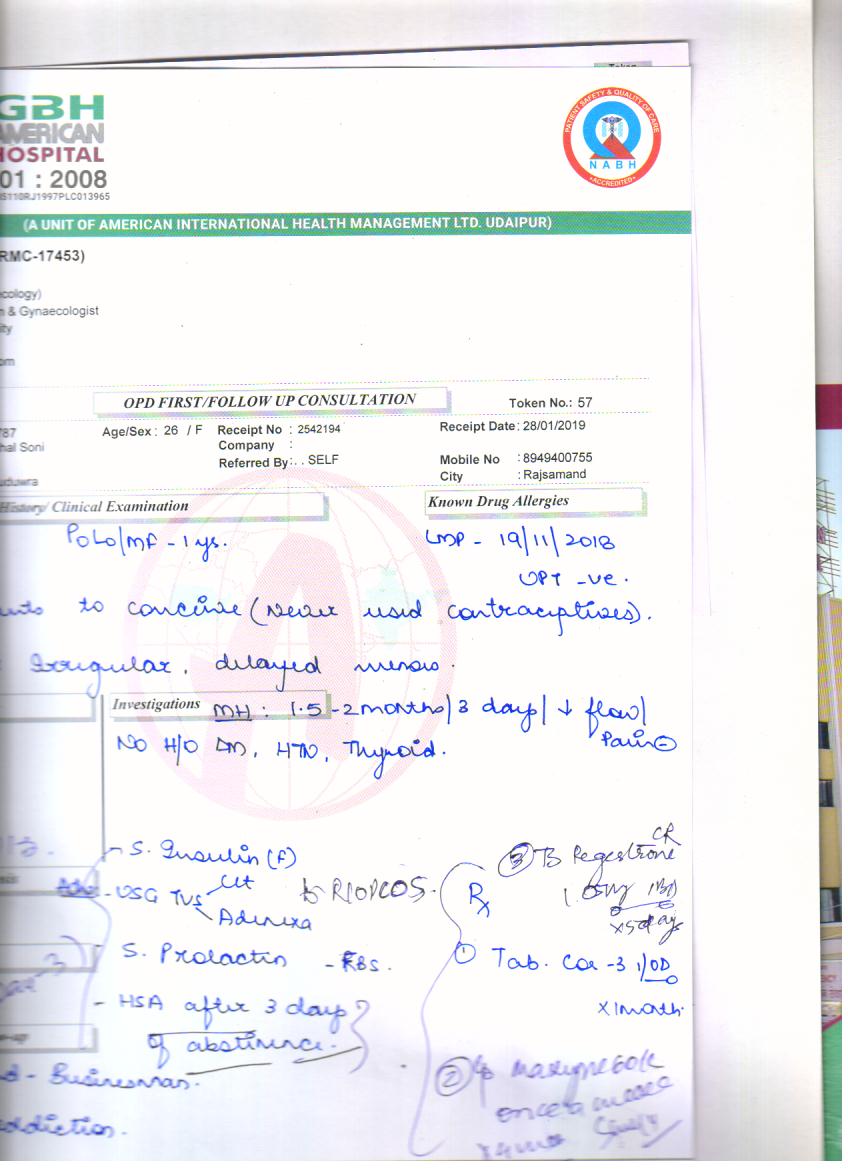 Token
GBH
AMERICAN
HOSPITAL
01 : 2008
PATIENT SAFETY & QUALITY OF CARE
NABH
ACCREDITED
(A UNIT OF AMERICAN INTERNATIONAL HEALTH MANAGEMENT LTD. UDAIPUR)
RMC-17453)
ecology)
n & Gynaecologist
ity
om
OPD FIRST/FOLLOW UP CONSULTATION
Token No.: 57
787
Age/Sex : 26 / F Receipt No : 2542194 Receipt Date : 28/01/2019
hal Soni
Company :
Referred By : . . SELF Mobile No : 8949400755
uduwra
City : Rajsamand
History/ Clinical Examination
Known Drug Allergies
P0L0/MF - 1 ys. LMP - 19/11/2018
UPT -ve.
to conceive (Never used contraceptives).
Irregular, delayed menses.
Investigations MH : 1.5 - 2 months/ 3 day/ ↓ flow/
No H/O DM, HTN, Thyroid. Pain ⊖
- S. Insulin (F)
- USG TVS Ut
Adenexa
to R/O PCOS.
S. Prolactin - RBS.
- HSA after 3 days
of abstinence.
- Businessman.
addiction.
③ Tb Regestrone CR
x 5 days
Rx
① Tab. 1/OD
x 1 month.
②
once a